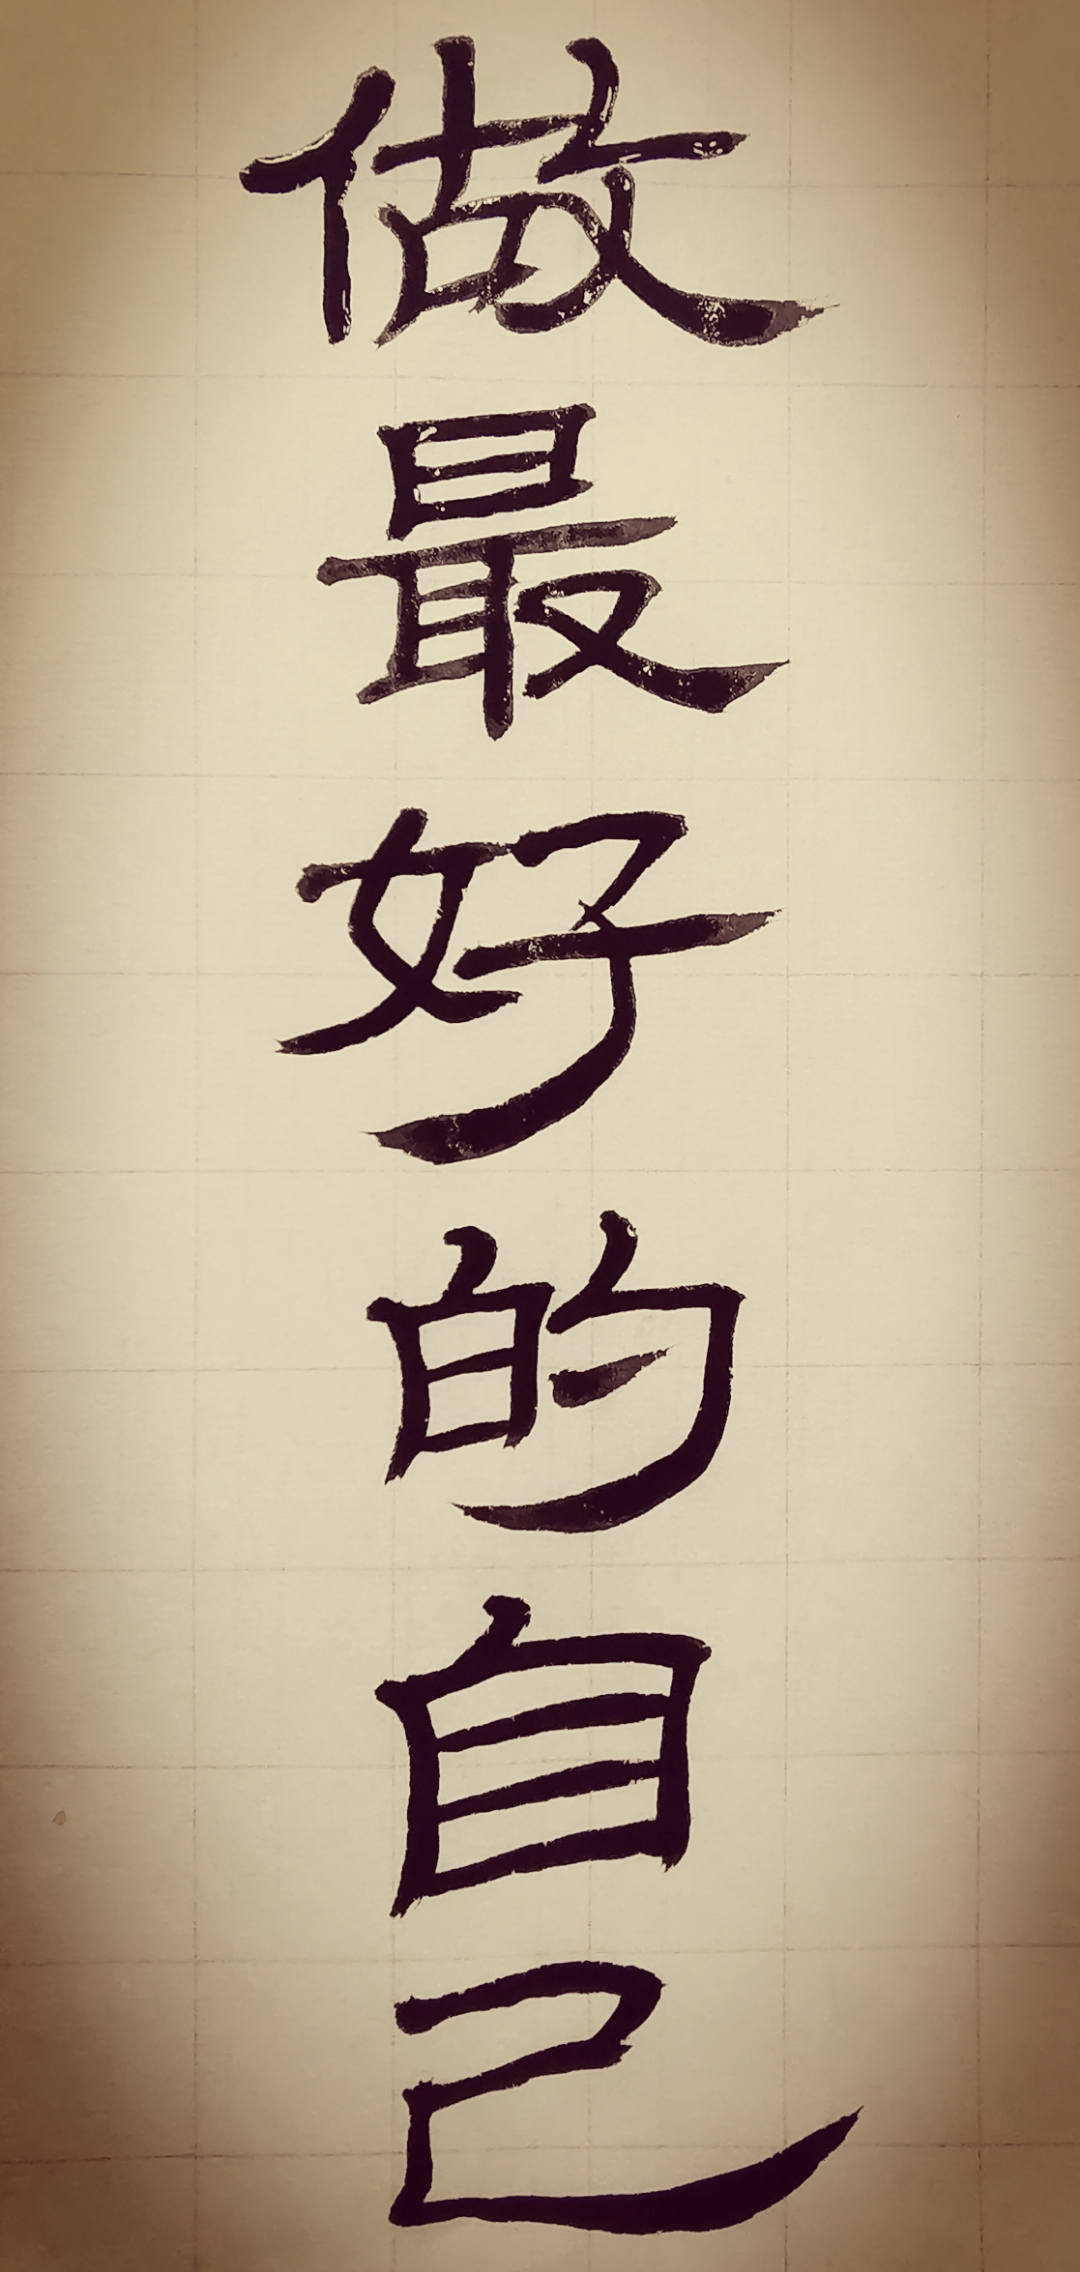 做最好的自己